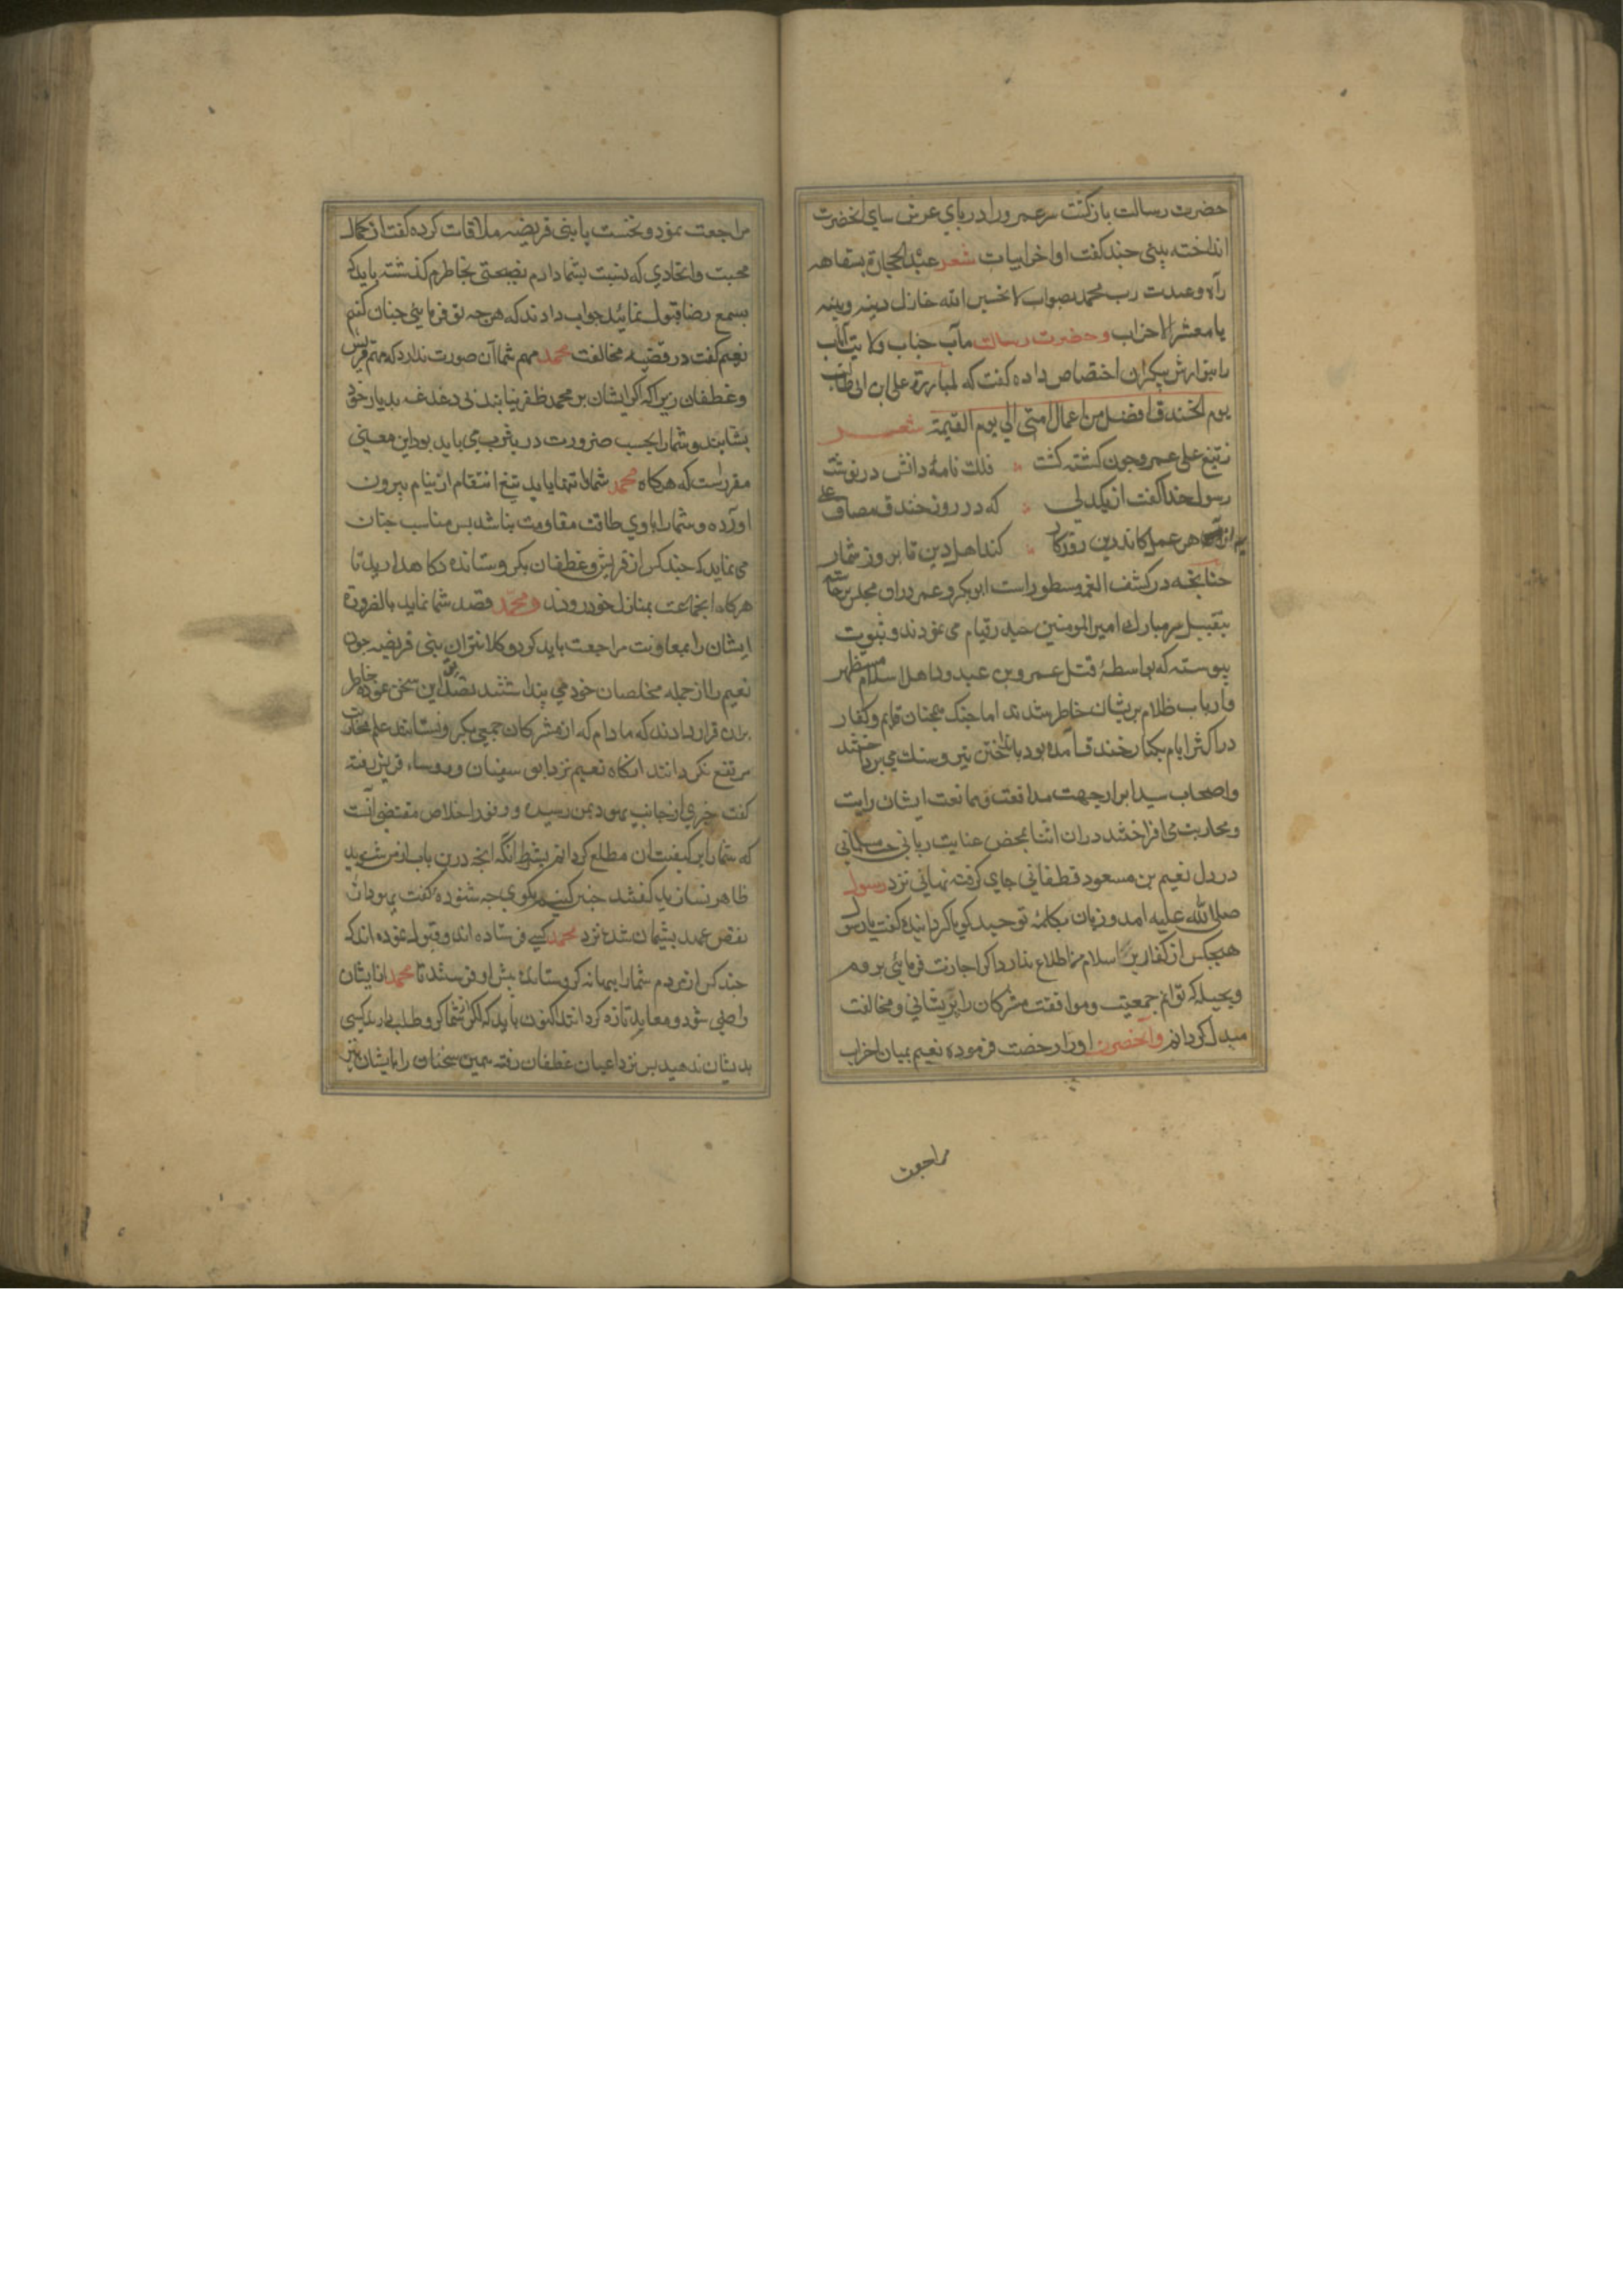 حضرت رسالت بازکشت سر عمرو را در پای عرش سای انحضرت
انداخته بیتی چند کفت اواخر ابیات شعر عبد الحجارة بسفاهه
رأه وعبدت رب محمد بصواب لا تحسبن الله خاذل دینه ونبیه
یا معشر الاحزاب وحضرت رسالت مآب جناب ولایت مآب
را بنوازش بیکران اختصاص داده کفت که لمبارزة علی ابن ابی طالب
یوم الخندق افضل من اعمال امتی الی یوم القیمة شعر
ز تیغ علی عمرو چون کشته کشت فلك نامهٔ دانش در نوشت
رسول خدا کفت از یکدلی که در روز خندق مصاف علی
به از هر عمل کاندرین روزکار کند اهل دین تا بروز شمار
چنانچه در کشف الغمه مسطور است ابوبکر و عمر دران مجلس برخاسته
بتقبیل سر مبارك امیر المومنین حیدر قیام می نمودند و ثبوت
پیوسته که بواسطهٔ قتل عمرو بن عبدود اهل اسلام مستظهر
وارباب ظلام پریشان خاطر شدند اما جنك همچنان قایم وکفار
در اکثر ایام بکنار خندق آمده بود بانداختن تیر وسنك می پرداختند
واصحاب سید ابرار جهت مدافعت وممانعت ایشان رایت
ومحاربت می افراختند دران اثنا بمحض عنایت ربانی
در دل نعیم بن مسعود قطفانی جای کرفته نهانی نزد رسول
صلی الله علیه امد و زبان بکلمهٔ توحید کویا کردانیده کفت یا رسول
هیچکس از کفار بر اسلام من اطلاع ندارد اکر اجازت فرمائی بروم
وبحیله که توانم جمعیت وموافقت مشرکان را پریشانی ومخالفت
مبدل کردانم وانحضرت او را رخصت فرموده نعیم بمیان احزاب
مراجعت
مراجعت نمود ونخست با بنی قریضه ملاقات کرده کفت از کمال
محبت واتحادی که نسبت بشما دارم نصیحتی بخاطرم کذشته باید که
بسمع رضا قبول نمائید جواب دادند که هرچه تو فرمائی چنان کنیم
نعیم کفت در قضیه مخالفت محمد مهم شما آن صورت ندارد که مهم قریش
وغطفان زیرا که اکر ایشان بر محمد ظفر نیابند بی دغدغه بدیار خود
بشتابند وشما را بحسب ضرورت در یثرب می باید بود این معنی
مقرر است که هرکاه محمد شما را تنها یابد تیغ انتقام از نیام بیرون
اورده وشما را با وی طاقت مقاومت نباشد پس مناسب چنان
می نماید که چند کس از قریش وغطفان بکرو ستانده نکاه دارید تا
هرکاه انجماعت بمنازل خود روند ومحمد قصد شما نماید بالضروره
ایشان را بمعاونت مراجعت باید کرد وکلانتران بنی قریضه چون
نعیم را از جمله مخلصان خود می پنداشتند تصدیق این سخن نموده خاطر
بران قرار دادند که مادام که از مشرکان جمعی بکرو نستانند علم محاربت
مرتفع نکردانند انکاه نعیم نزد ابو سفیان وروساء قریش رفته
کفت خبری از جانب یهود بمن رسیده ووفور اخلاص مقتضی آنست
که شما را بر کیفیت ان مطلع کردانم بشرط انکه انچه درین باب از من شنوید
ظاهر نسازید کفتند چنین کنیم بکوی چه شنوده کفت یهودان
نقض عهد پشیمان شده نزد محمد کسی فرستاده اند وقبول نموده اند که
چند کس از مردم شما را ببهانه کرو ستانده پیش او فرستند تا محمد از ایشان
راضی شود ومعاهده تازه کردانند اکنون باید که اکر از شما کرو طلب دارند کسی
بدیشان ندهید پس نزد اعیان غطفان رفته همین سخنان را با ایشان نیز